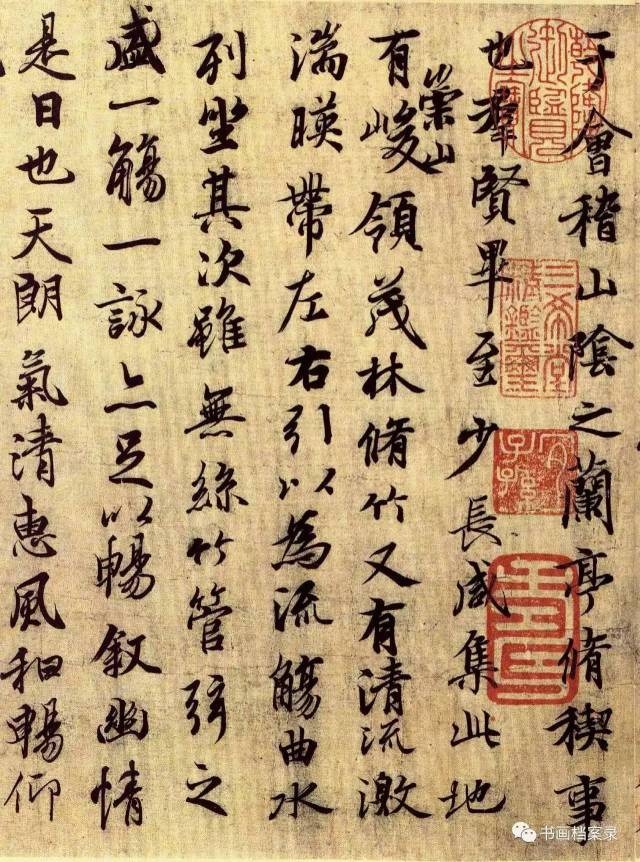 于會稽山陰之蘭亭脩稧事
也羣賢畢至少長咸集此地
有崇山峻領茂林脩竹又有清流激
湍暎帶左右引以為流觴曲水
列坐其次雖無絲竹管弦之
盛一觴一詠亦足以暢叙幽情
是日也天朗氣清惠風和暢仰
乾隆御覽之寶
三希堂精鑑璽
宜子孫
书画档案录